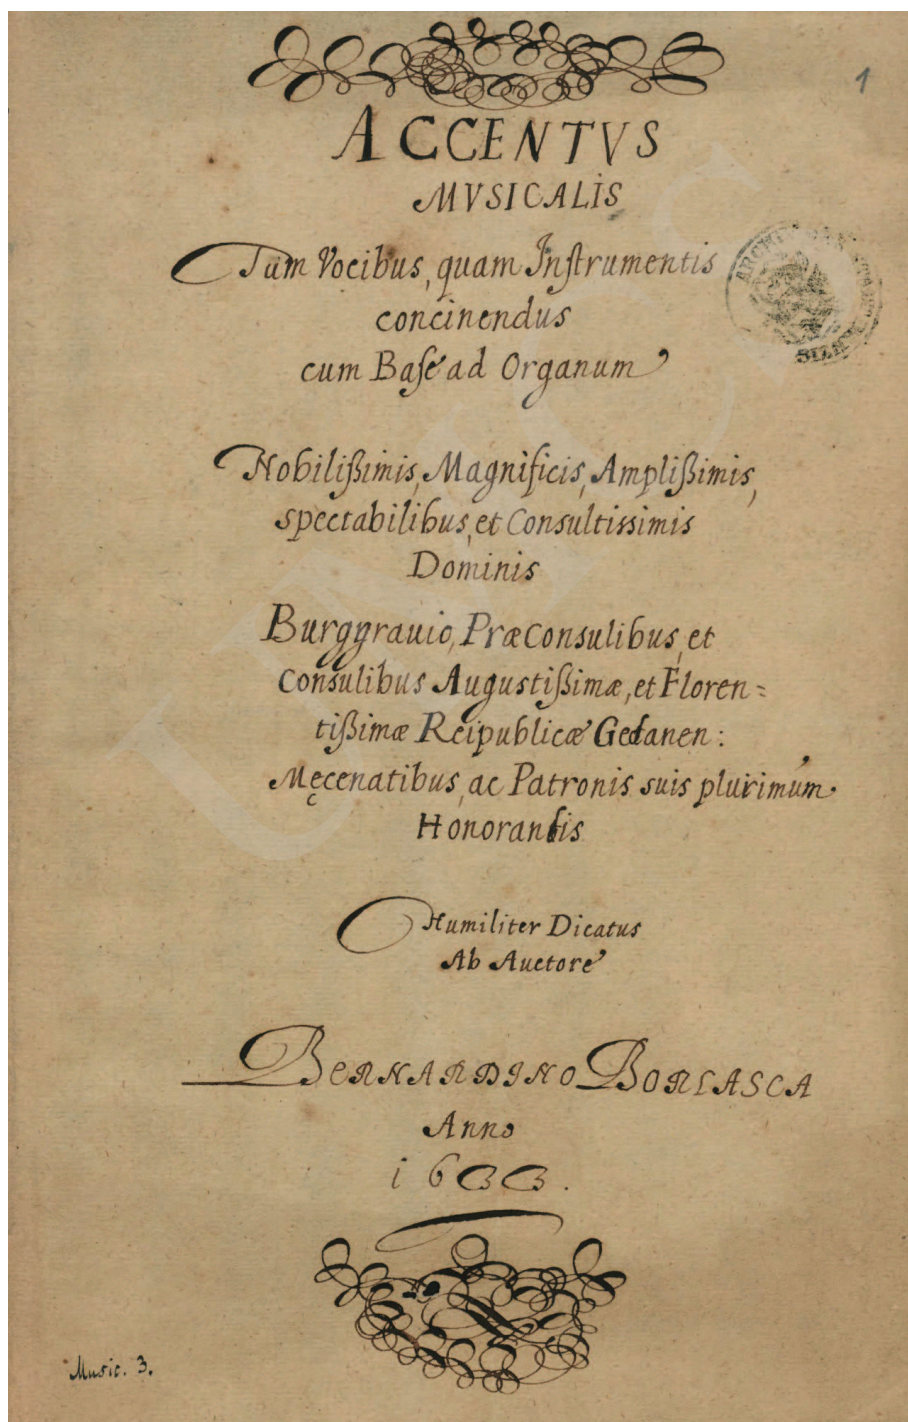 1
ACCENTVS
MVSICALIS
Tum Vocibus, quam Inſtrumentis
concinendus
cum Baſe ad Organum
Nobilißimis, Magnificis, Amplißimis,
spectabilibus, et Consultissimis
Dominis
Burggrauio, Præconsulibus, et
Consulibus Augustißimæ, et Floren=
tißimæ Reipublicæ Gedanen:
Męcenatibus, ac Patronis suis plurimùm
Honorandis
Humiliter Dicatus
Ab Auctore
BERNARDINO BORLASCA
Anno
1633.
Music. 3.